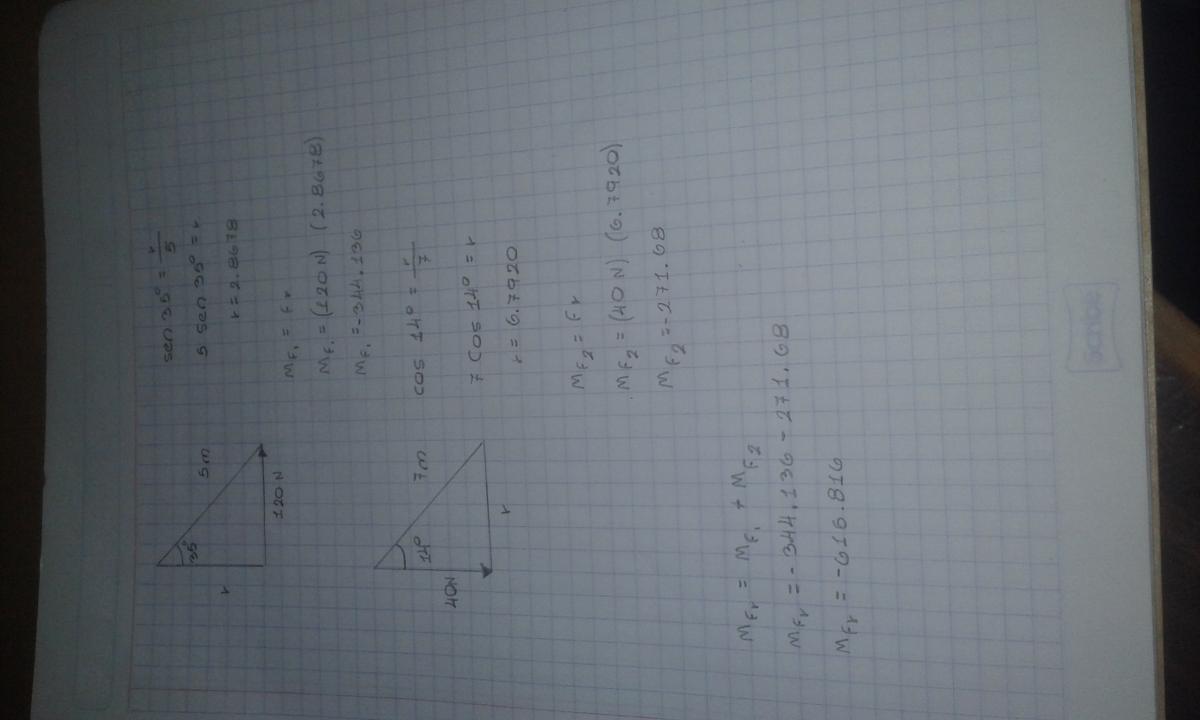 35°
5m
r
120 N
sen 35° = r/5
5 sen 35° = r
r = 2.8678
MF₁ = Fr
MF₁ = (120 N) (2.8678)
MF₁ = -344.136
14°
7m
40N
r
cos 14° = r/7
7 cos 14° = r
r = 6.7920
MF2 = Fr
MF2 = (40 N) (6.7920)
MF2 = -271.68
MFr = MF₁ + MF2
MFr = -344.136 - 271.68
MFr = -616.816
Scribe